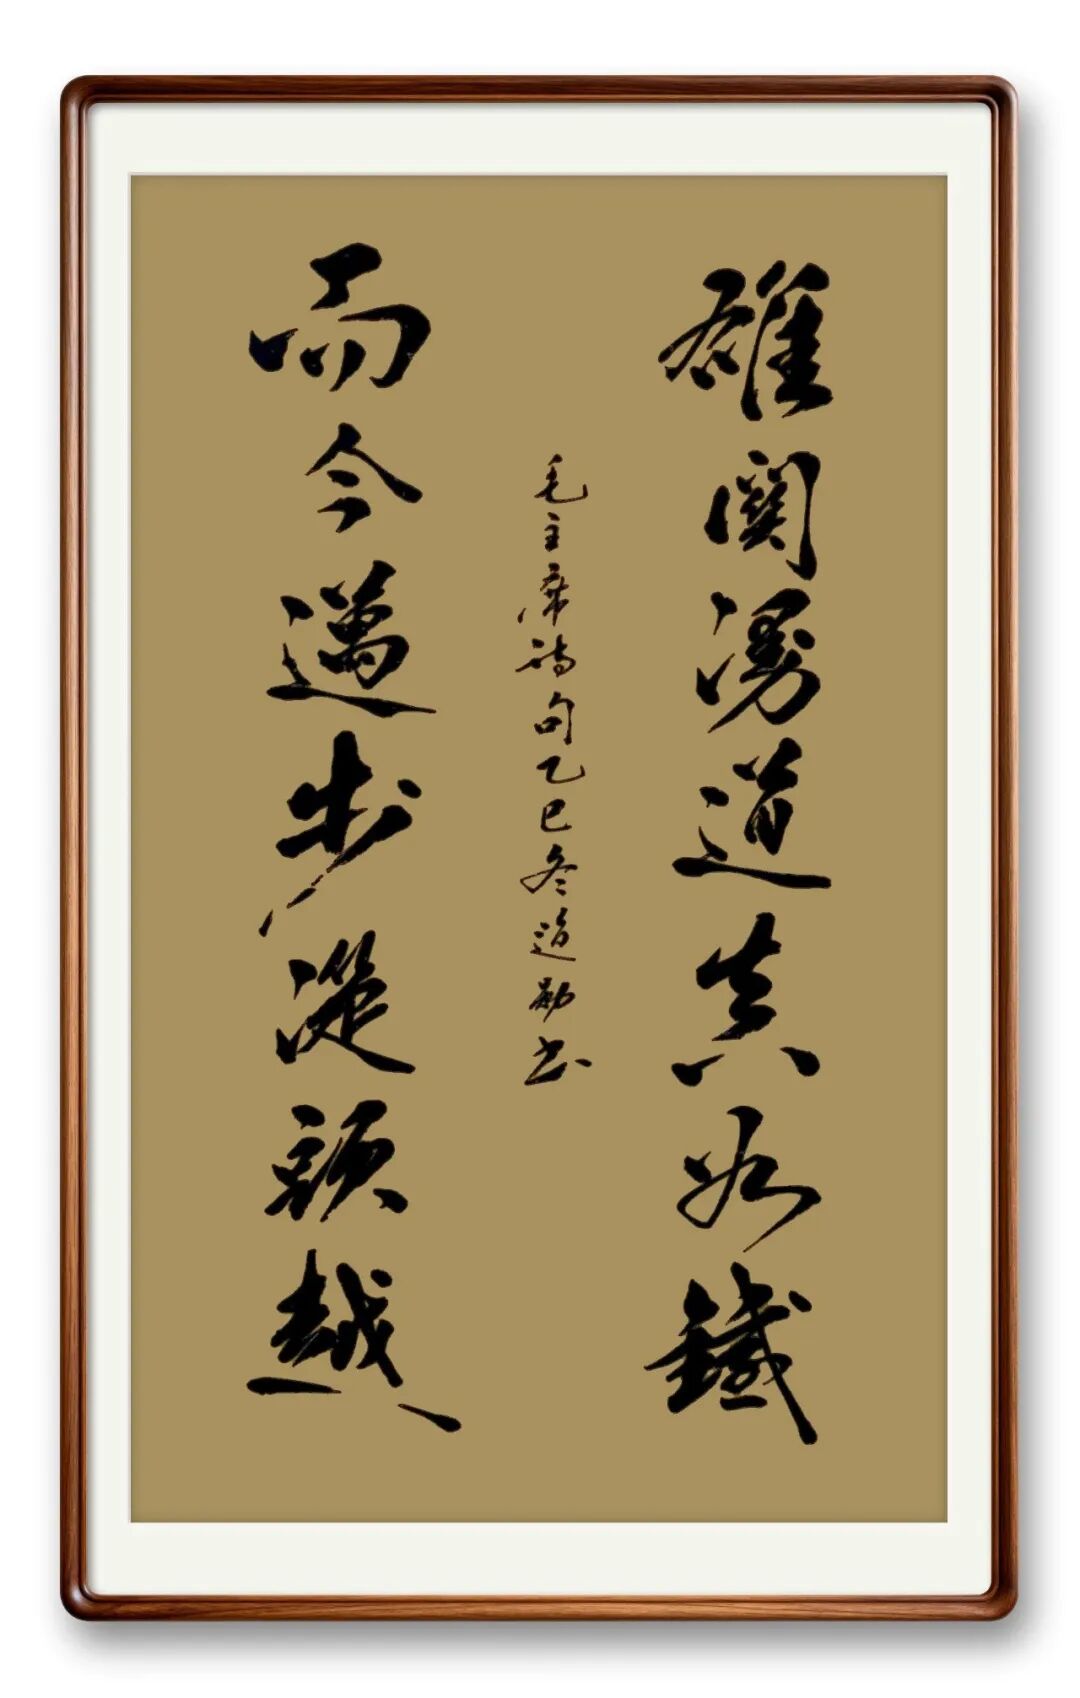 雄關漫道真如鐵
而今邁步從頭越
毛主席詩句乙巳冬道勛書